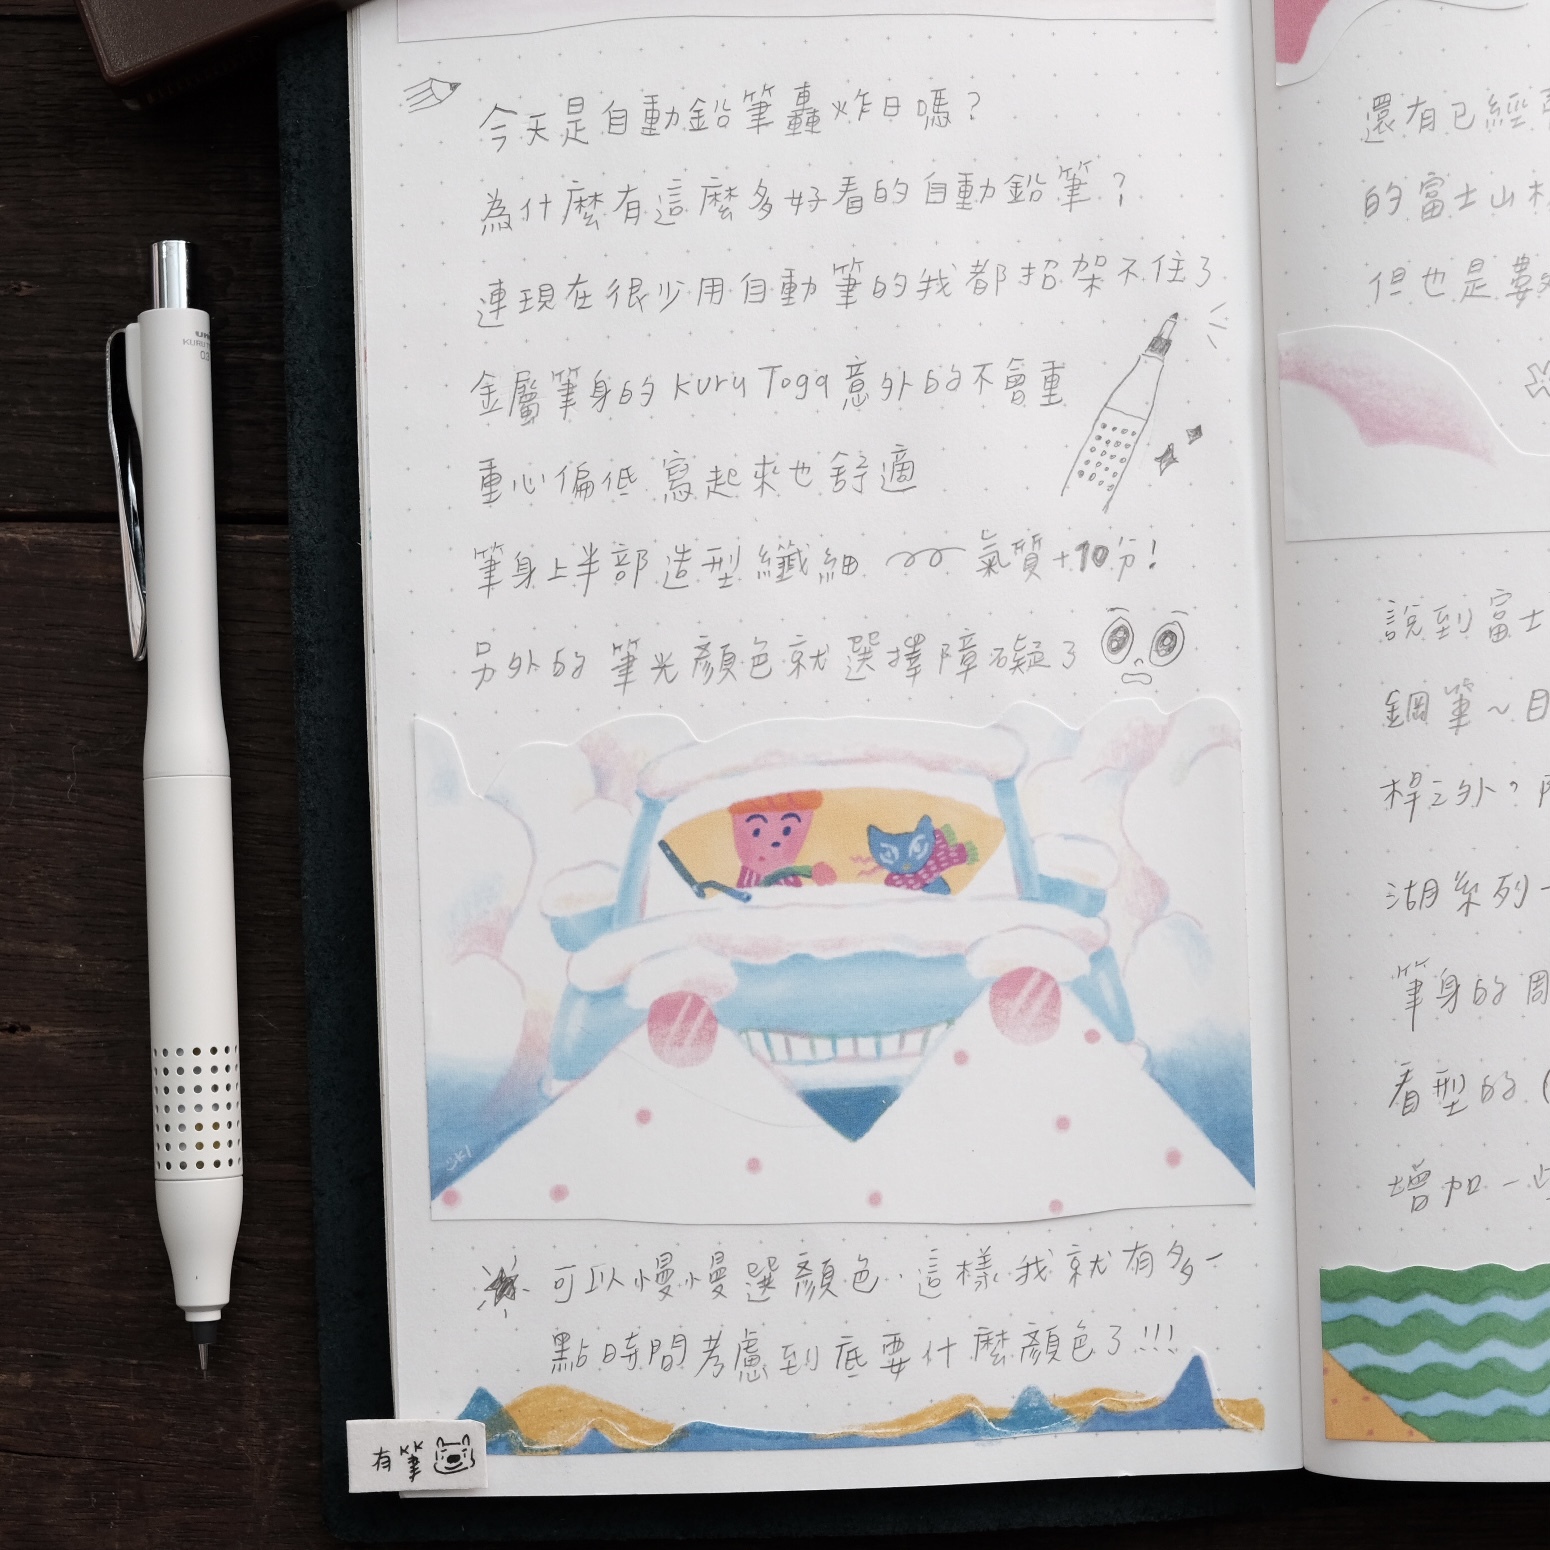 uni
KURU
0.3
今天是自動鉛筆轟炸日嗎？
為什麼有這麼多好看的自動鉛筆？
連現在很少用自動筆的我都招架不住了
金屬筆身的 Kuru Toga 意外的不會重
重心偏低 寫起來也舒適
筆身上半部造型纖細 氣質+10分！
另外的 筆光顏色就選擇障礙了
可以慢慢選顏色，這樣我就有多一
點時間考慮到底要什麼顏色了!!!
有筆
還有已經
的富士山
但也是要
說到富士
鋼筆～目
桿之外？
湖系列
筆身的周
看型的（
增加一些